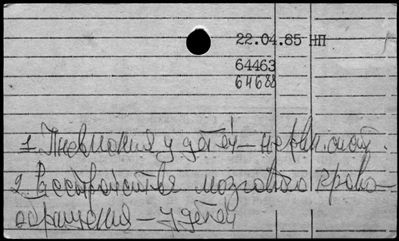 22.04.85 НП
64463
64688
1. Пневмония у детей – нервн. сист.
2. Расстройства мозгового крово-
обращения – у детей